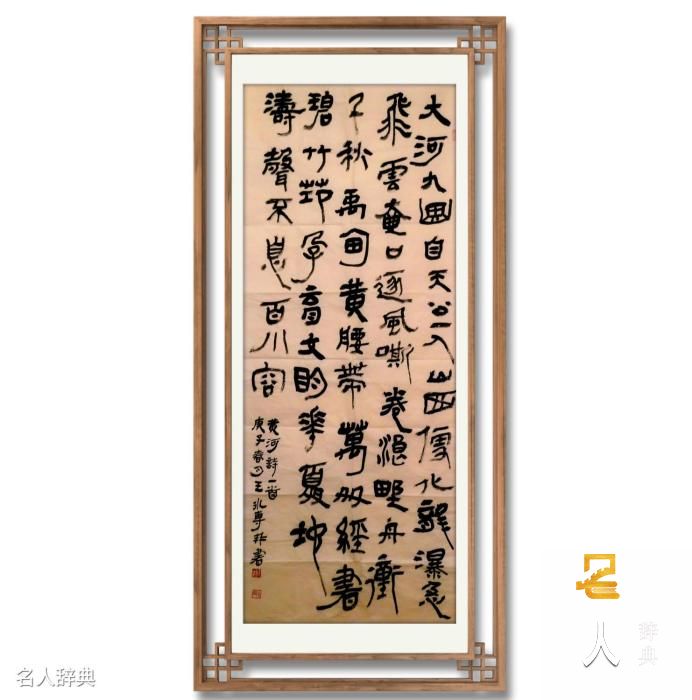 大河九回自天公一入山西便化龍瀑急
飛雲奄口逐風嘶卷浪野舟衝
千秋禹甸黄腰帶萬經書
碧竹筇孕育文明華夏地
濤聲不息百川容
黄河詩一首
庚子春月王書
名人辞典
名人
辞典